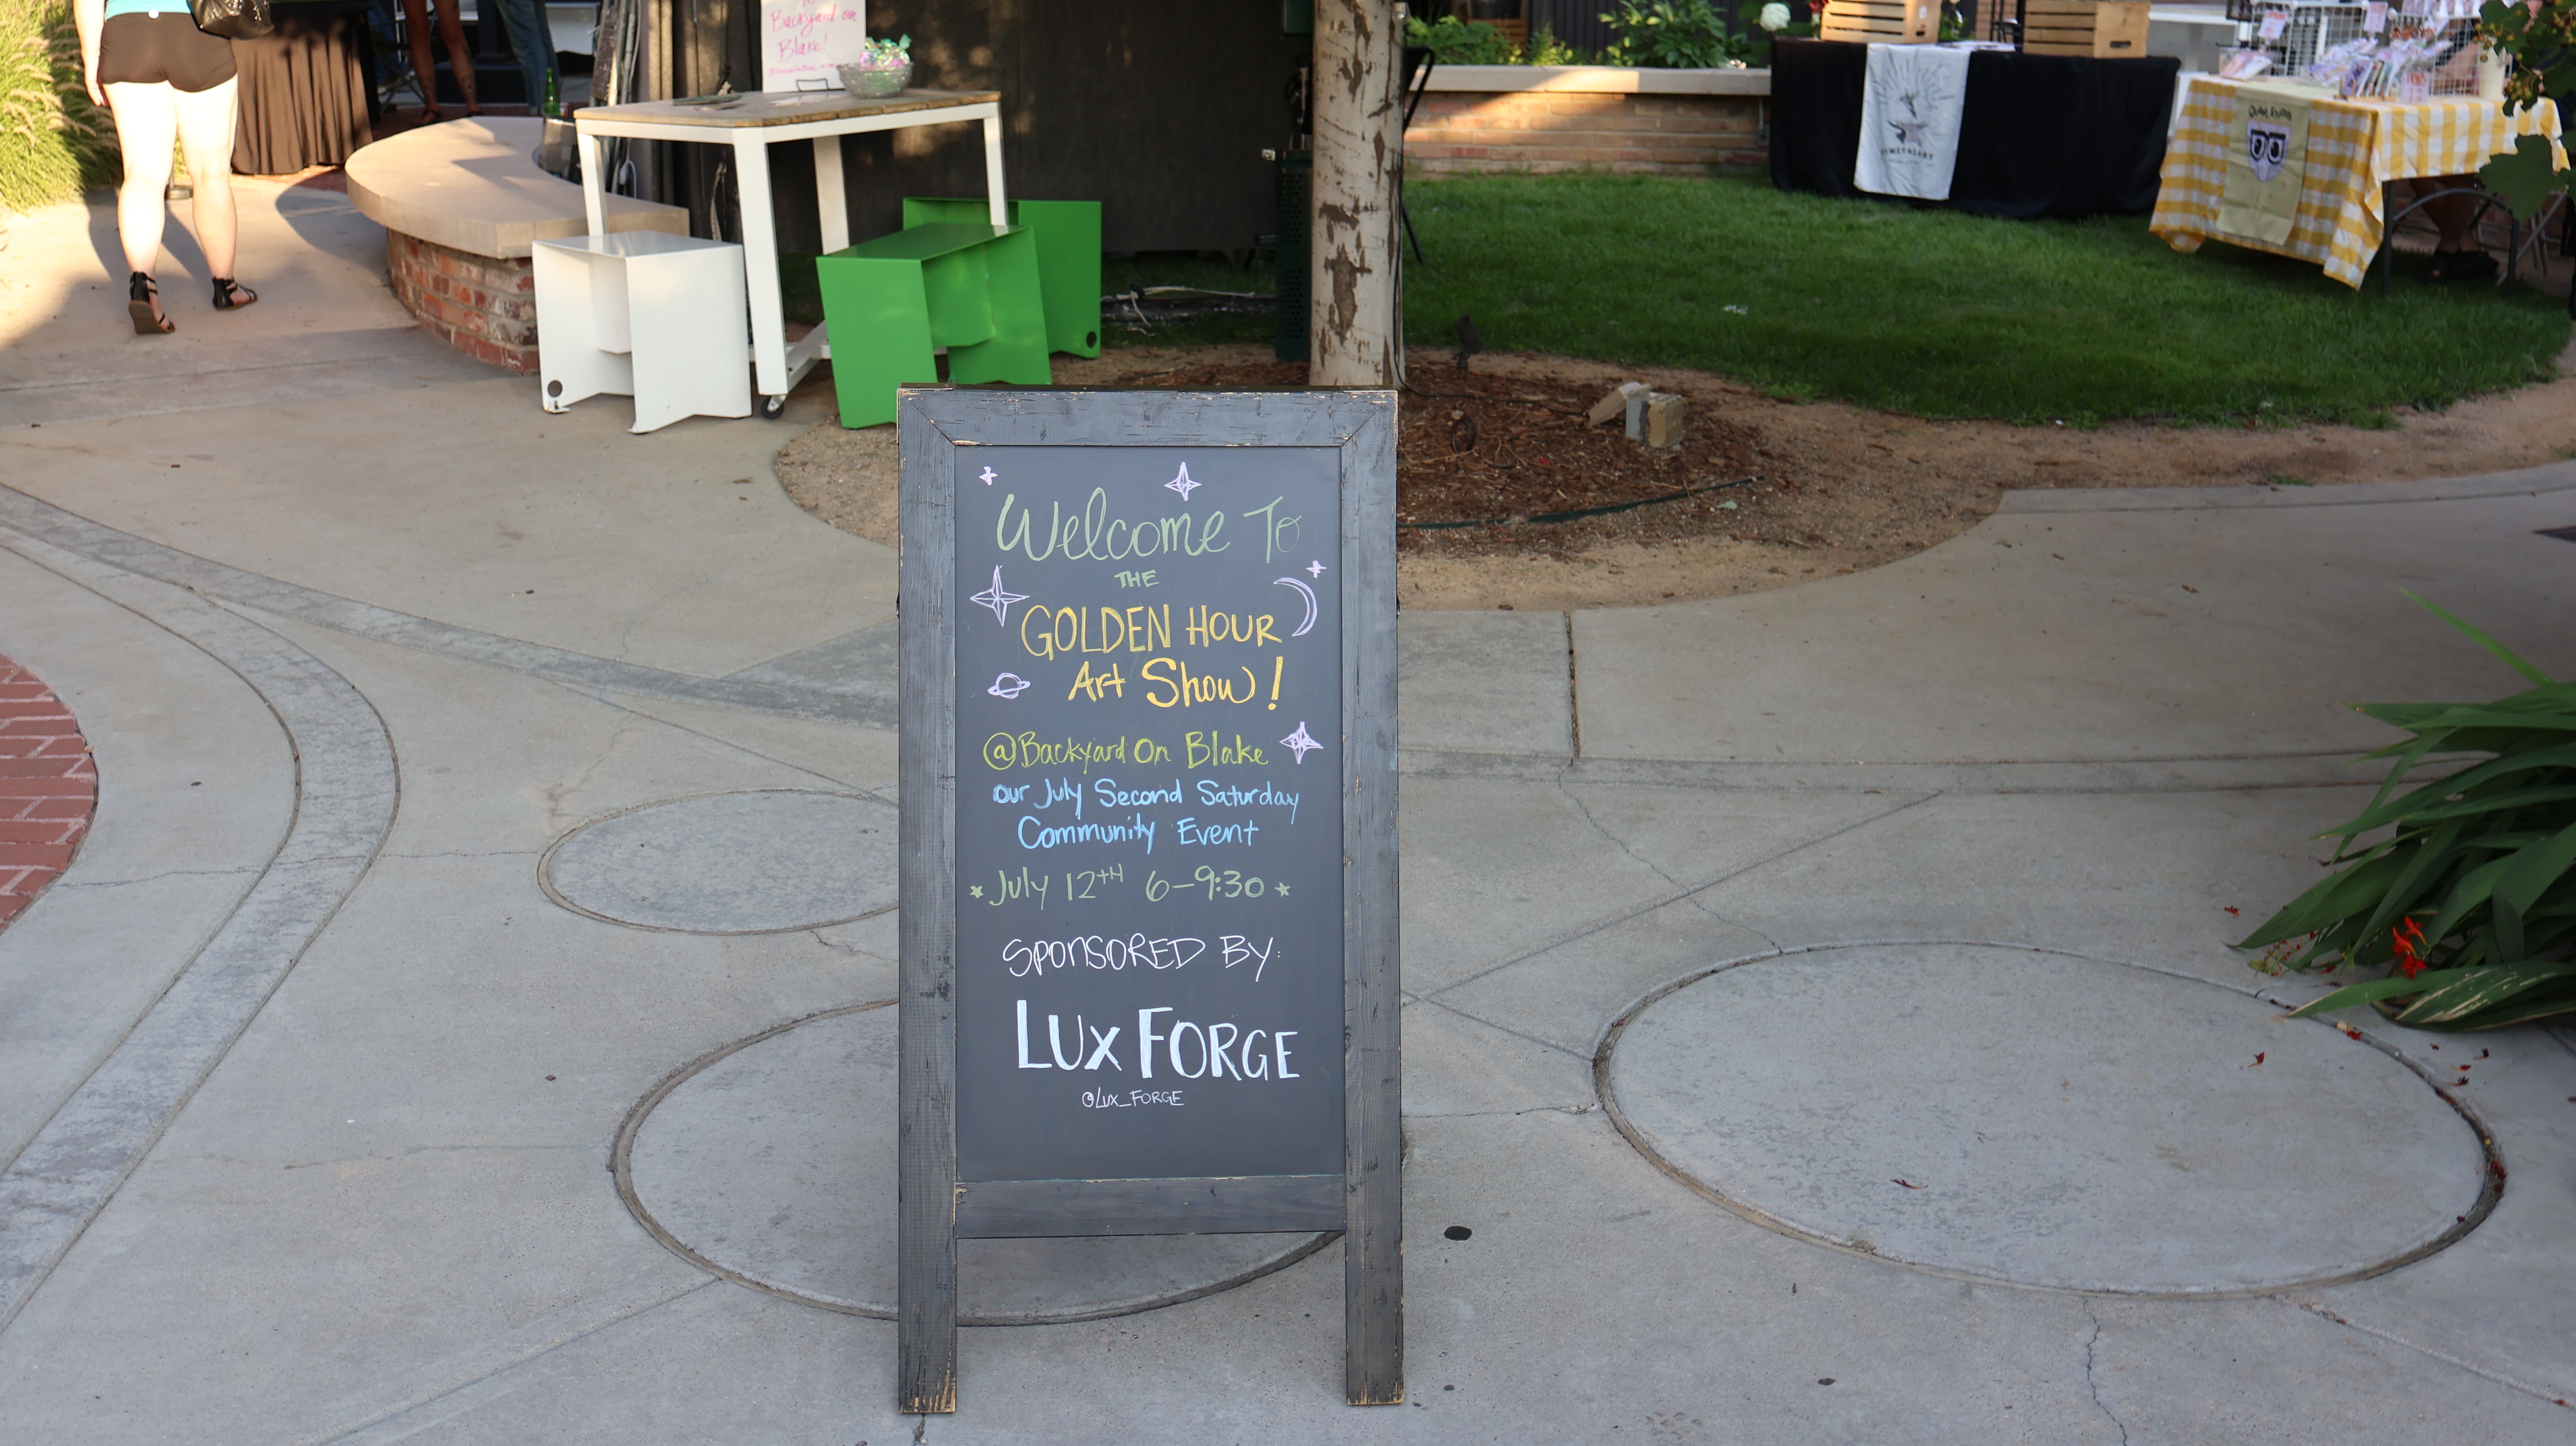 Backyard on
Blake!
Welcome To
THE
GOLDEN HOUR
Art Show!
@Backyard On Blake
our July Second Saturday
Community Event
July 12TH 6-9:30
SPONSORED BY:
LUX FORGE
@LUX_FORGE